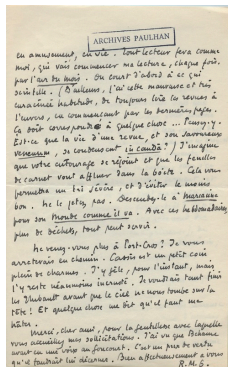 ARCHIVES PAULHAN
en amusement, en vie. Tout lecteur fera comme
moi, qui vais commencer ma lecture, chaque fois,
par l'air du mois. On court d'abord à ce qui
scintille. (D'ailleurs, j'ai cette mauvaise et très
enracinée habitude, de toujours lire les revues à
l'envers, en commençant par les dernières pages.
Ça doit correspondre à quelque chose... Pensez-y.
Est-ce que la vie d'une revue, et son savoureux
venenum, se condensent in caudâ?) J'imagine
que votre entourage se réjouit et que les feuilles
de carnet vont affluer dans la boîte. Cela vous
permettra un tri sévère, et d'éviter le moins
bon. Ne le jetez pas. Descendez-le à Marianne
pour son Monde comme il va. Avec ces hebdomadaires,
plus de déchets, tout peut servir.
Ne venez-vous plus à Port-Cros? Je vous
arrêterais en chemin. Cassis est un petit coin
plein de charmes. J'y gèle, pour l'instant, mais
j'y reste néanmoins. Je voudrais tant finir
les Thibault avant que le ciel ne nous tombe sur la
tête! Et quelque chose me dit qu'il faut me
hâter.
Merci, cher ami, pour la gentillesse avec laquelle
vous accueillez mes sollicitations. J'ai vu que
avait eu une voix au Goncourt. C'est un prix de vertu
qu'il faudrait lui décerner. Bien affectueusement à vous
R.M.G.